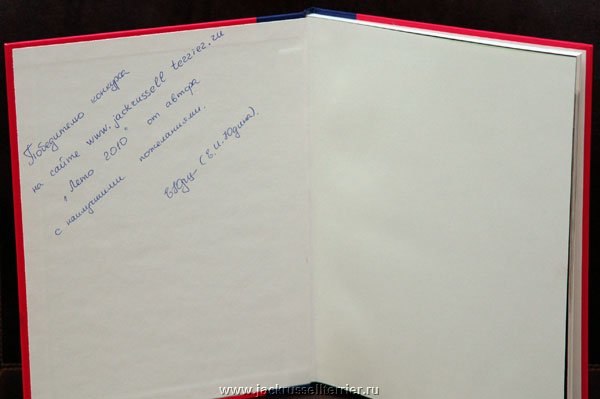 Победителю конкурса
на сайте www.jackrussell terrier.ru
"Лето 2010" от автора
с наилучшими пожеланиями.
ЕЮдин (Е.И. Юдина).
www.jackrussellterrier.ru